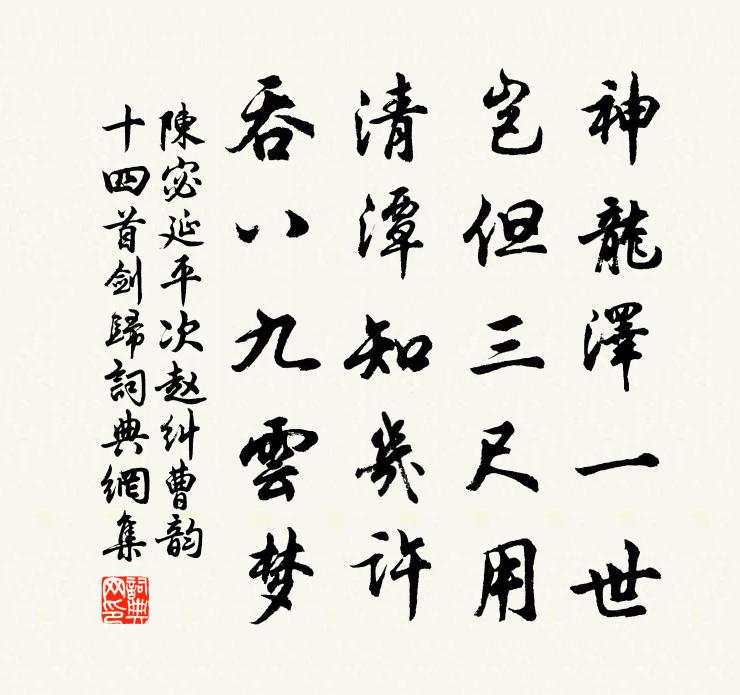 神龍澤一世
豈但三尺用
清潭知幾許
吞八九雲梦
陳宓延平次赵糾曹韵
十四首劍歸詞典網集
詞典網印